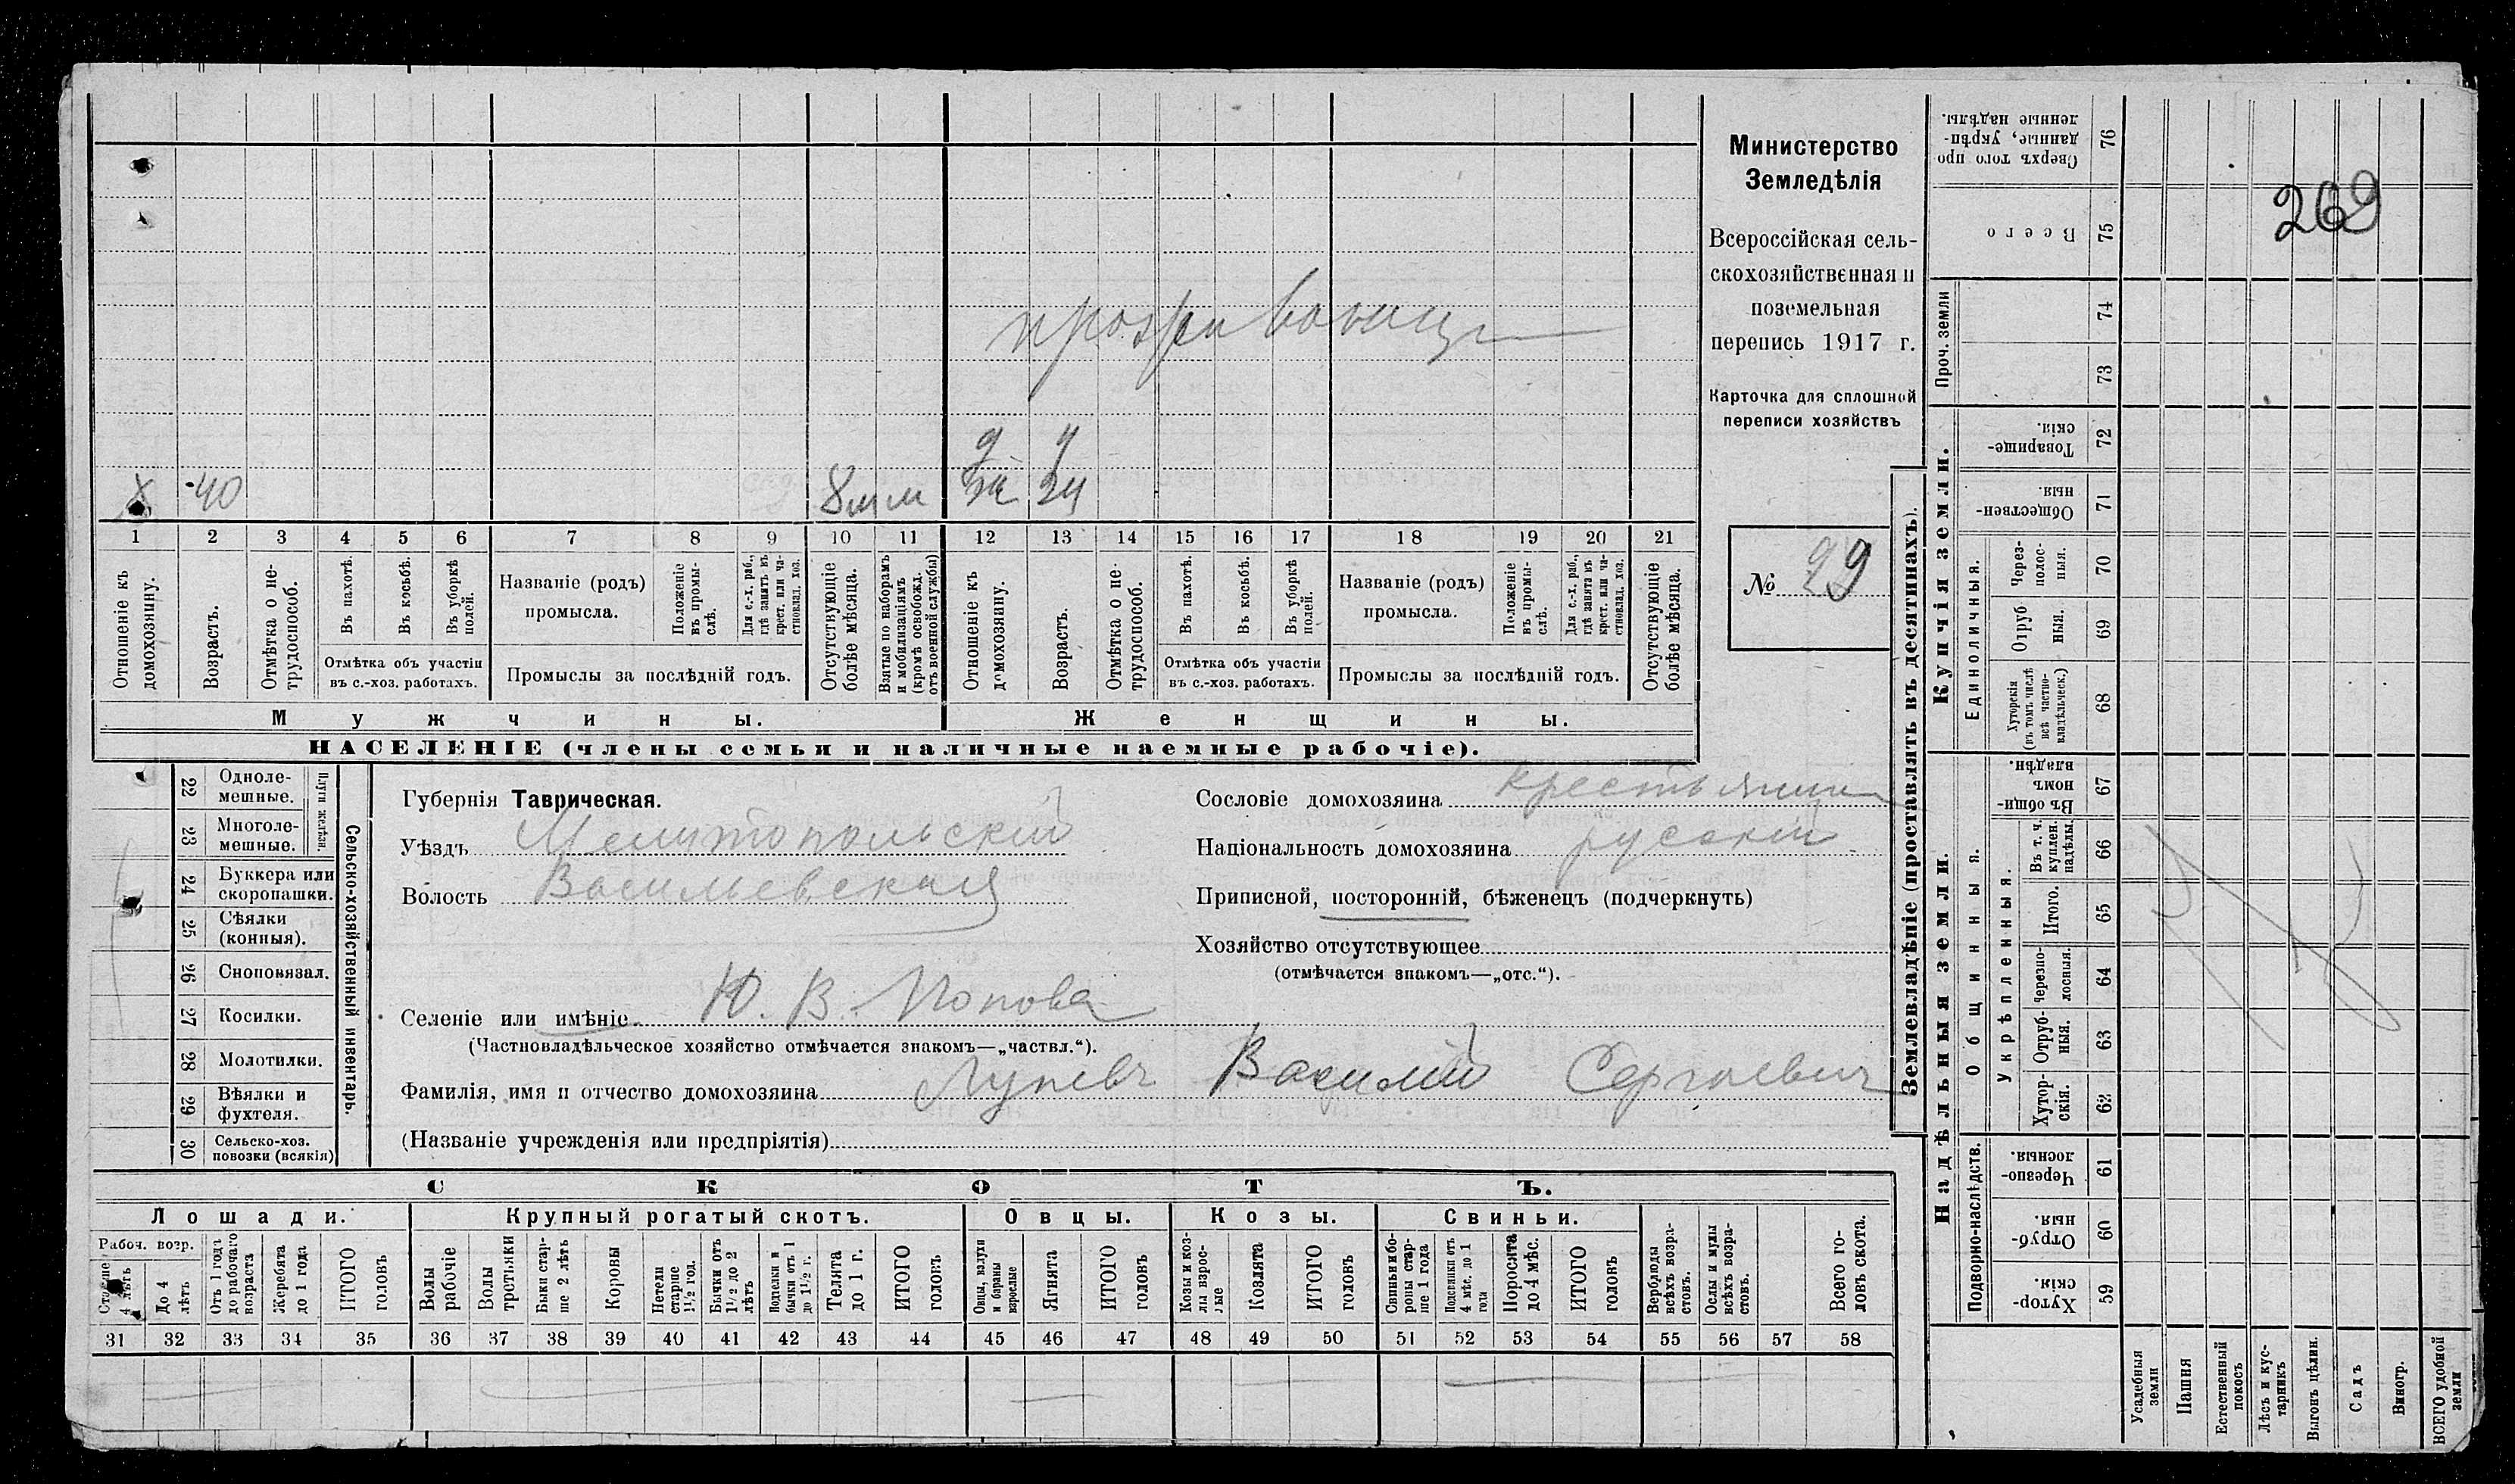 269
Министерство
Земледѣлія
Всероссійская сель-
скохозяйственная и
поземельная
перепись 1917 г.
Карточка для сплошной
переписи хозяйствъ
№ 29
Х 40
1 2 3 4 5 6 7 8 9 10 11 12 13 14 15 16 17 18 19 20 21
Отношеніе къ домохозяину.
Возрастъ.
Отмѣтка о не-трудоспособ.
Въ пахотѣ.
Въ косьбѣ.
Въ уборкѣ полей.
Отмѣтка объ участіи
въ с.-хоз. работахъ.
Названіе (родъ)
промысла.
Положеніе въ промы-слѣ.
Для с.-х. раб., гдѣ занятъ въ крест. или ча-стновлад. хоз.
Промыслы за послѣдній годъ.
Отсутствующіе болѣе мѣсяца.
Взятые по наборамъ и мобилизаціямъ (кромѣ освобожд. отъ военной службы)
Отношеніе къ домохозяину.
Возрастъ.
Отмѣтка о не-трудоспособ.
Въ пахотѣ.
Въ косьбѣ.
Въ уборкѣ полей.
Отмѣтка объ участіи
въ с.-хоз. работахъ.
Названіе (родъ)
промысла.
Положеніе въ промы-слѣ.
Для с.-х. раб., гдѣ занята въ крест. или ча-стновлад. хоз.
Промыслы за послѣдній годъ.
Отсутствующіе болѣе мѣсяца.
Мужчины.
Женщины.
НАСЕЛЕНІЕ (члены семьи и наличные наемные рабочіе).
Сельско-хозяйственный инвентарь.
Плуги желѣзн.
22 Одноле-мешные.
23 Многоле-мешные.
24 Буккера или скоропашки.
25 Сѣялки (конныя).
26 Сноповязал.
27 Косилки.
28 Молотилки.
29 Вѣялки и фухтеля.
30 Сельско-хоз. повозки (всякія)
Губернія Таврическая.
Уѣздъ Мелитопольскій
Волость Васильевская
Селеніе или имѣніе Ю. В. Попова
(Частновладѣльческое хозяйство отмѣчается знакомъ—„частвл.“).
Фамилія, имя и отчество домохозяина Лупевъ Василій Сергѣевич
(Названіе учрежденія или предпріятія)
Сословіе домохозяина крестьянин
Національность домохозяина русскій
Приписной, посторонній, бѣженецъ (подчеркнуть)
Хозяйство отсутствующее
(отмѣчается знакомъ—„отс.“).
СКОТЪ.
Лошади.
Рабоч. возр.
Старше 4 лѣтъ
До 4 лѣтъ
Отъ 1 года до рабочаго возраста
Жеребята до 1 года
ИТОГО головъ
Крупный рогатый скотъ.
Волы рабочіе
Волы третьяки
Быки стар-ше 2 лѣтъ
Коровы
Нетели старше 1½ год.
Бычки отъ 1½ до 2 лѣтъ
Подтелки и бычки отъ 1 до 1½ г.
Телята до 1 г.
ИТОГО головъ
Овцы.
Овцы, валухи и бараны взрослые
Ягнята
ИТОГО головъ
Козы.
Козы и коз-лы взрос-лые
Козлята
ИТОГО головъ
Свиньи.
Свиньи и бо-ровы стар-ше 1 года
Подсвинки отъ 4 мѣс. до 1 года
Поросята до 4 мѣс.
ИТОГО головъ
Верблюды всѣхъ возра-стовъ.
Ослы и мулы всѣхъ возра-стовъ.
Всего го-ловъ скота.
31 32 33 34 35 36 37 38 39 40 41 42 43 44 45 46 47 48 49 50 51 52 53 54 55 56 57 58
Землевладѣніе (проставлять въ десятинахъ).
Купчія земли.
Надѣльныя земли.
Сверхъ того про данные, укрѣп-ленные надѣлы. 76
Всего 75
Проч. земли
74
73
Товарище-скія. 72
Обществен-ныя. 71
Единоличныя.
Через-полос-ныя. 70
Отруб ныя. 69
Хуторскія (въ томъ числѣ всѣ частно-владѣльческ.) 68
Въ общи-номъ владѣн. 67
Общинныя.
Укрѣпленныя.
Въ т. ч. куплен. надѣлы. 66
Итого. 65
Черезпо-лосныя. 64
Отруб-ныя. 63
Хутор-скія. 62
Подворно-наслѣдств.
Черезпо-лосныя. 61
Отруб-ныя. 60
Хутор-скія. 59
Усадебныя земли
Пашня
Естественный покосъ
Лѣсъ и кус-тарникъ
Выгонъ цѣлин.
Садъ
Виногр.
ВСЕГО удобной земли